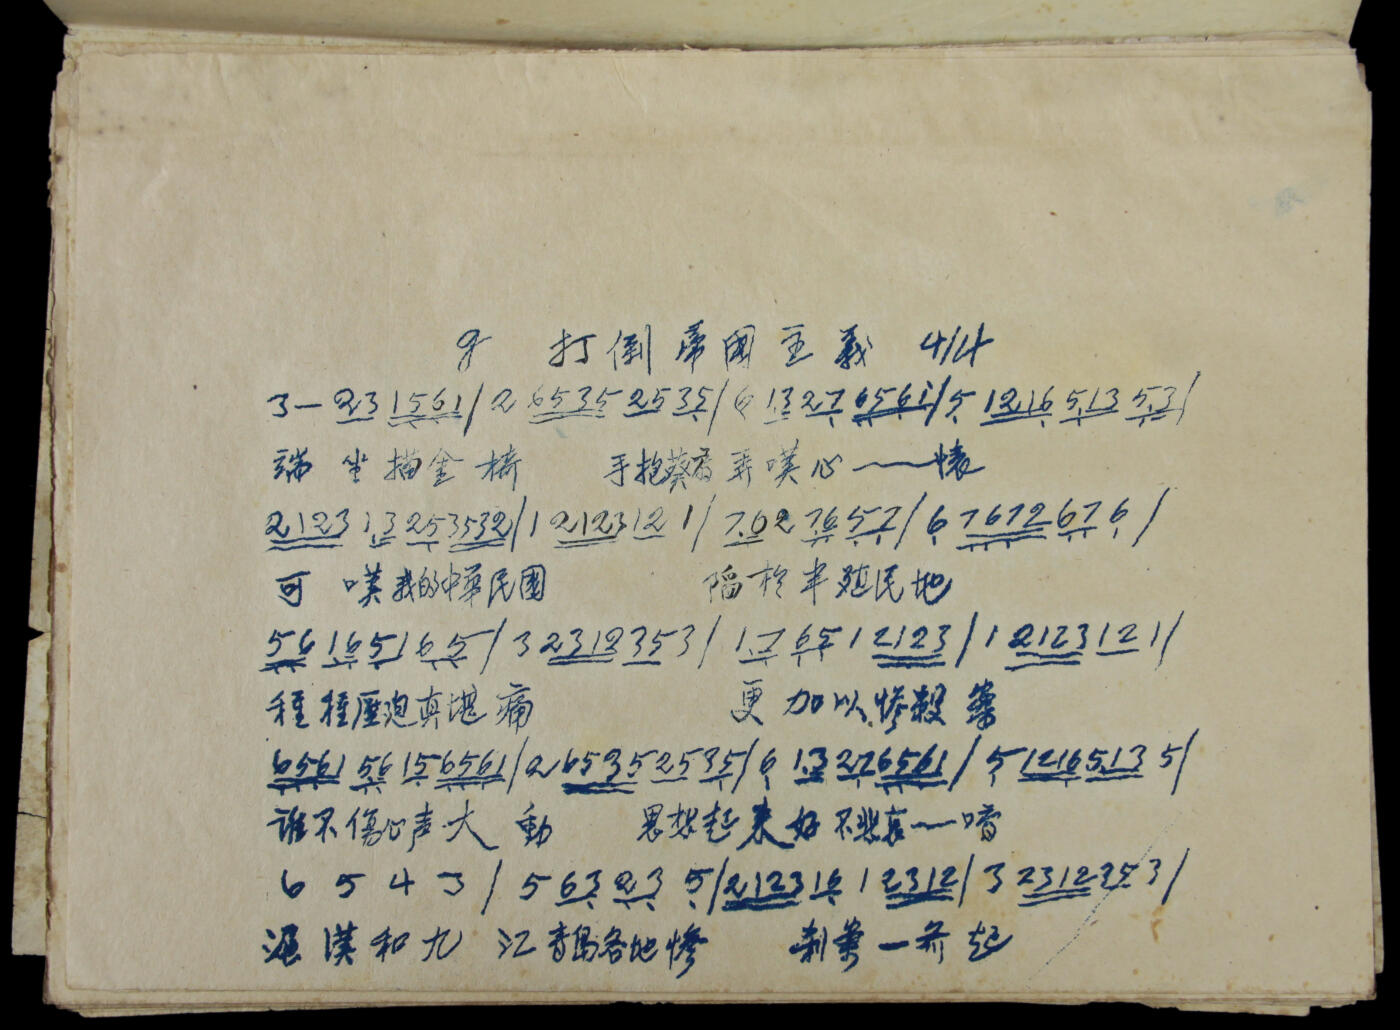 9 打倒帝国主義 4/4
3—23 1561/2 6535 2535/6 13 27 6561/5 1216 513 53/
端坐描金椅 手抱 弄嘆心——懐
2123 13 253532/1 2123 12 1/7.62 76 57/6 7672 67 6/
可嘆我的中華民國 陷於半殖民地
56 1651 65/3 2312 353/1.7 65 1 2123/1 2123 12 1/
種種壓迫真堪痛 更加以惨殺案
6561 56 15 6561/2 6535 2535/6 1.3 276561/5 1216513 5/
誰不傷心声大動 思想起来好不悲哀——唷
6 5 4 3/5 63 23 5/2123 16 1 2312/3 2312353/
滬漢和九江青島各地惨 刺案一齐起